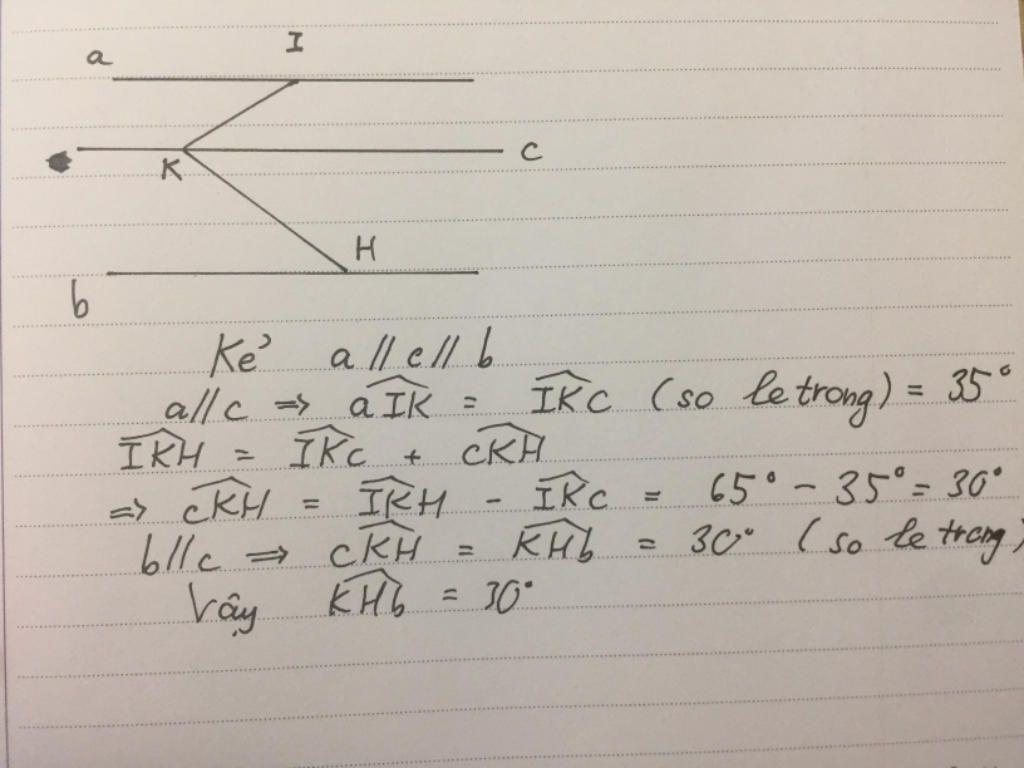 a
I
K
C
H
b
Kẻ a // c // b
a // c ⇒ \widehat{aIK} = \widehat{IKc} (so le trong) = 35°
\widehat{IKH} = \widehat{IKc} + \widehat{cKH}
⇒ \widehat{cKH} = \widehat{IKH} - \widehat{IKc} = 65° - 35° = 30°
b // c ⇒ \widehat{cKH} = \widehat{KHb} = 30° (so le trong)
Vậy \widehat{KHb} = 30°